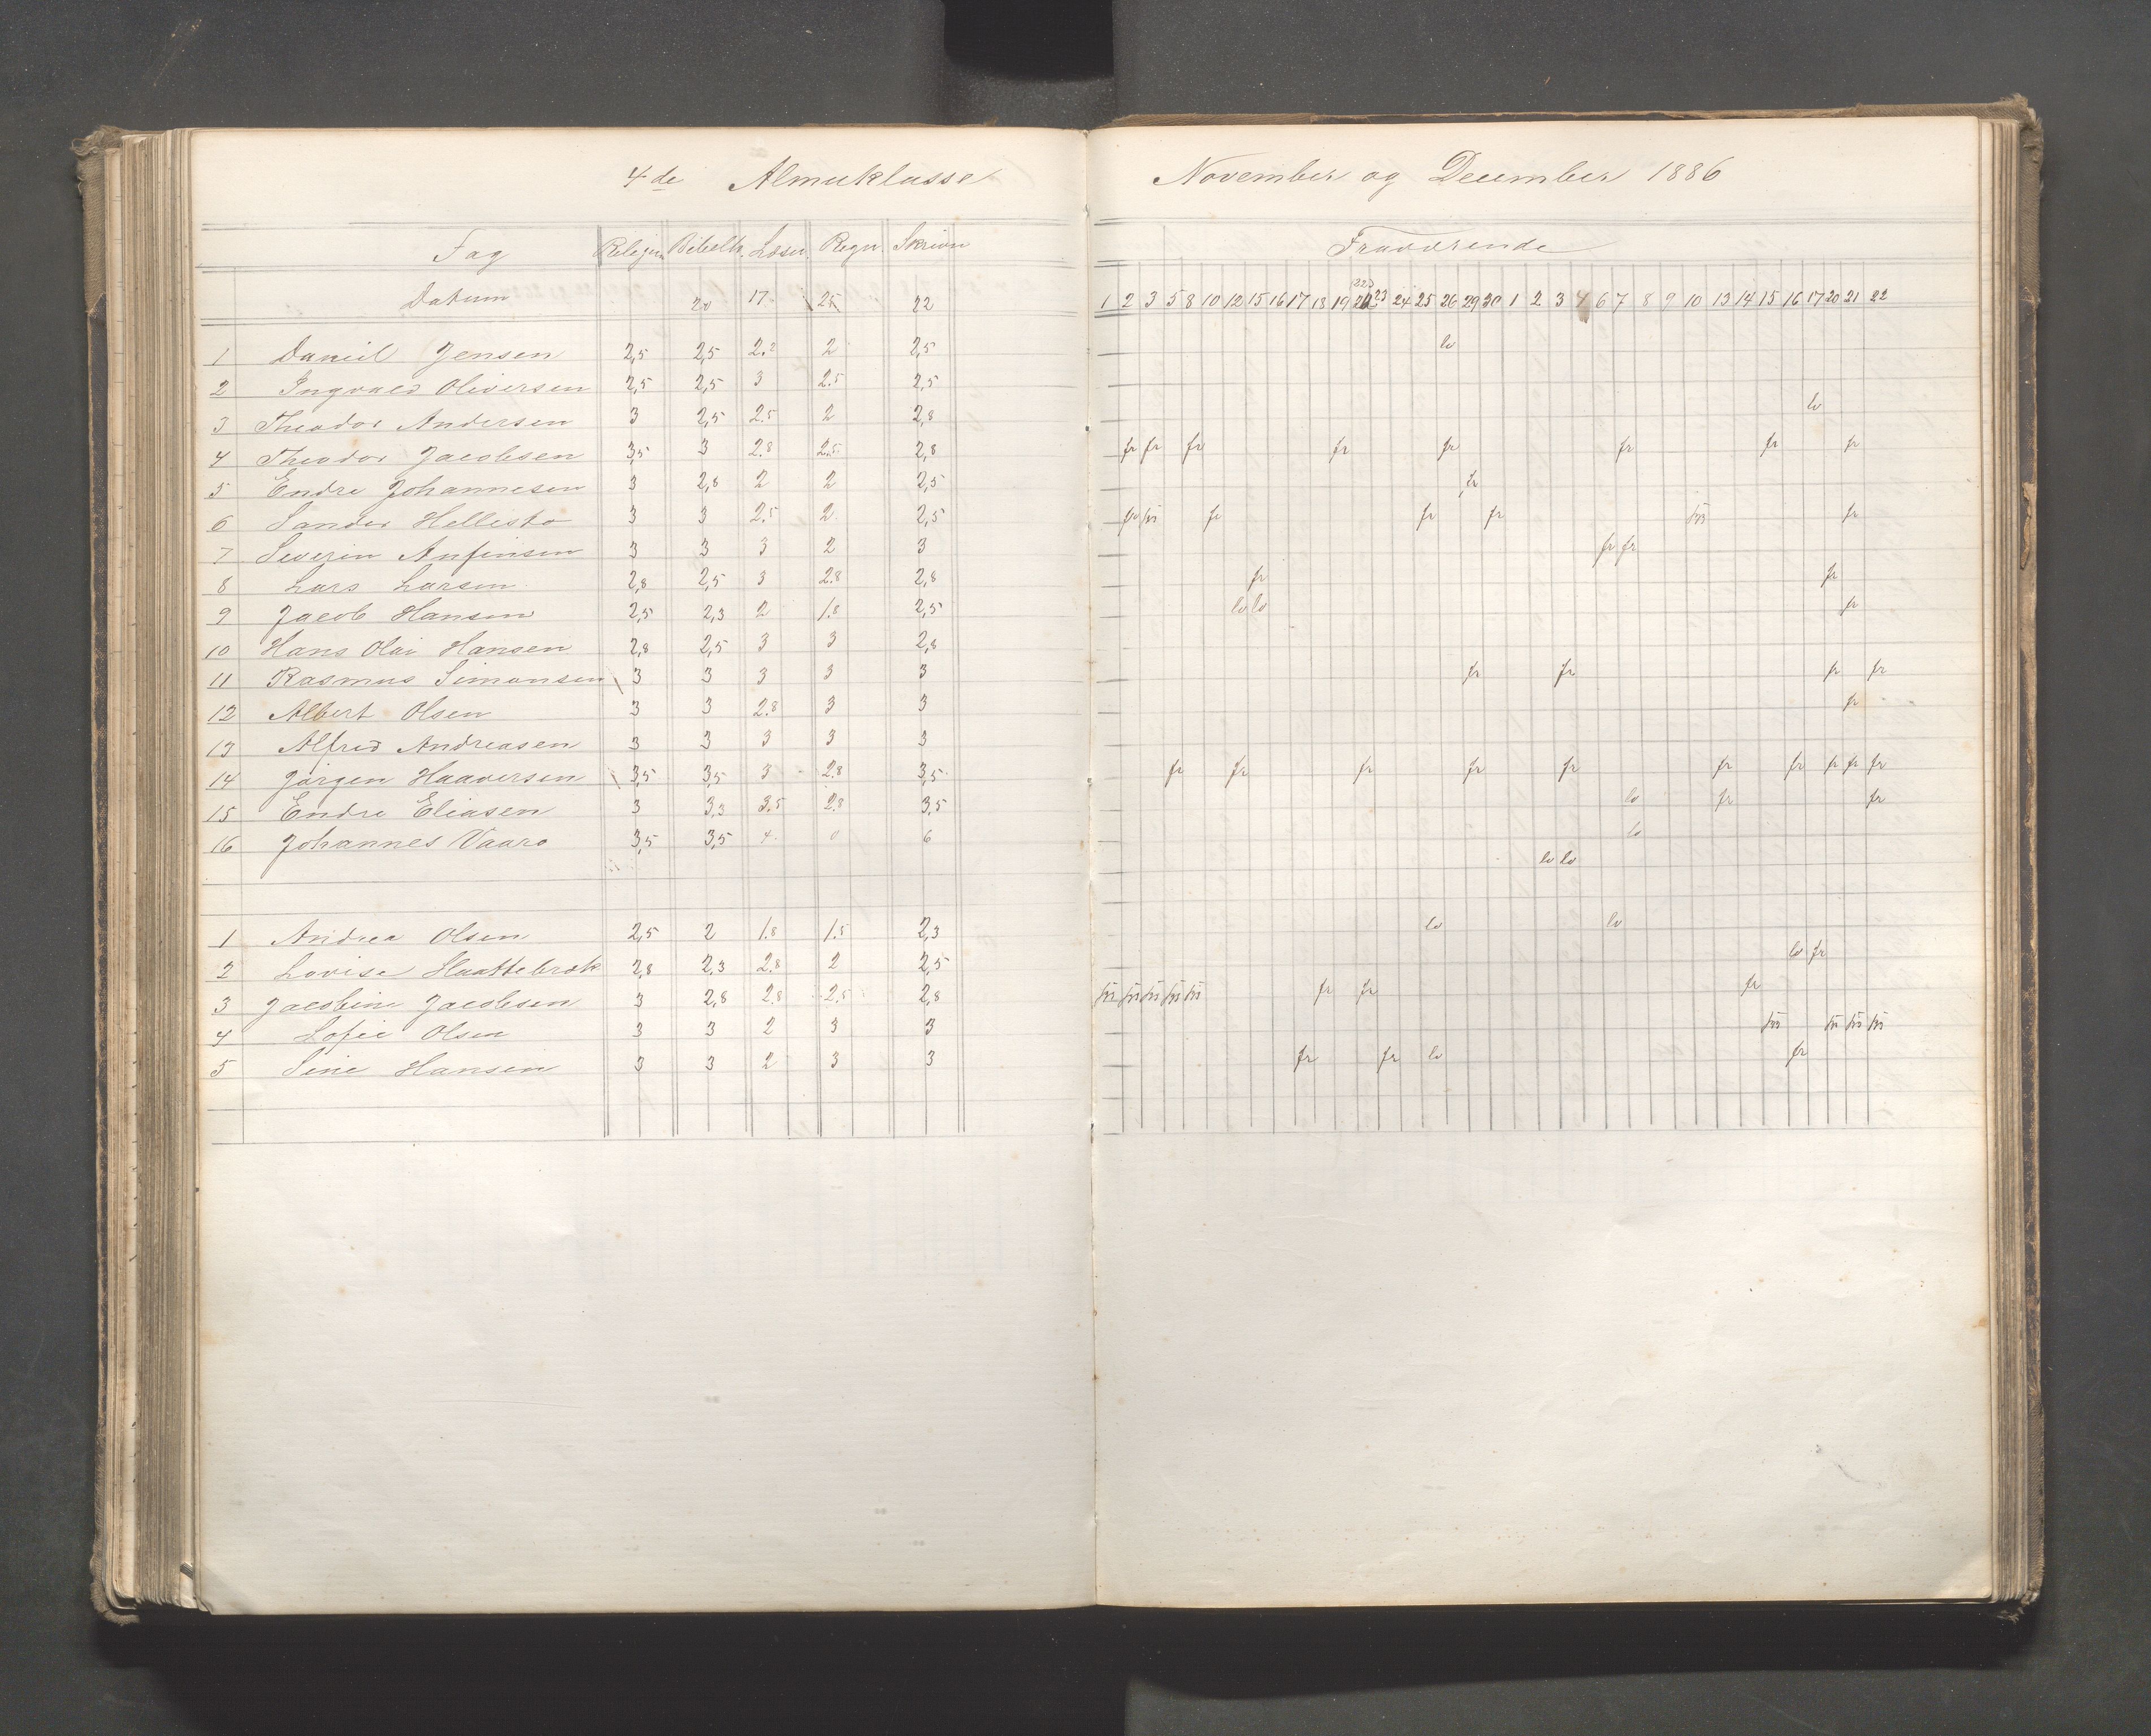 4de Almueklasse
Fag Relign. Bibelh. Læsn. Regn. Skrivn
Datum 20 17 25 22
1 Daniel Jensen 2,5 2,5 2.2 2 2,5
2 Ingvald Oliversen 2,5 2,5 3 2.5 2,5
3 Theodor Andersen 3 2,5 2.5 2 2,8
4 Theodor Jacobsen 3,5 3 2.8 2.5 2,8
5 Endre Johannesen 3 2,8 2 2 2,5
6 Sander Hellestø 3 3 2.5 2 2,5
7 Severin Anfinsen 3 3 3 2 3
8 Lars Larsen 2,8 2,5 3 2.8 2,8
9 Jacob Hansen 2,5 2,3 2 1.8 2,5
10 Hans Olai Hansen 2,8 2,5 3 3 2,8
11 Rasmus Simonsen 3 3 3 3 3
12 Albert Olsen 3 3 2.8 3 3
13 Alfred Andreasen 3 3 3 3 3
14 Jørgen Haaversen 3,5 3,5 3 2.8 3,5
15 Endre Eliasen 3 3,3 3.5 2.8 3,5
16 Johannes Vaaro 3,5 3,5 4 0 6
1 Andrea Olsen 2,5 2 1.8 1.5 2,3
2 Lovise 2,8 2,3 2.8 2 2,5
3 Jacobine Jacobsen 3 2,8 2.8 2,5 2,8
4 Sofie Olsen 3 3 2 3 3
5 Sine Hansen 3 3 2 3 3
November og December 1886
Fraværende
1 2 3 5 8 10 12 15 16 17 18 19 22 23 24 25 26 29 30 1 2 3 4 6 7 8 9 10 13 14 15 16 17 20 21 22
lo
lo
fr fr fr fr fr fr fr fr
fr
fr fr fr fr
fr fr
fr fr
lo lo fr
fr fr fr fr
fr
fr fr fr fr fr fr fr fr fr fr
lo fr fr
lo
lo lo
lo lo
lo fr
fr fr fr
fr fr lo fr